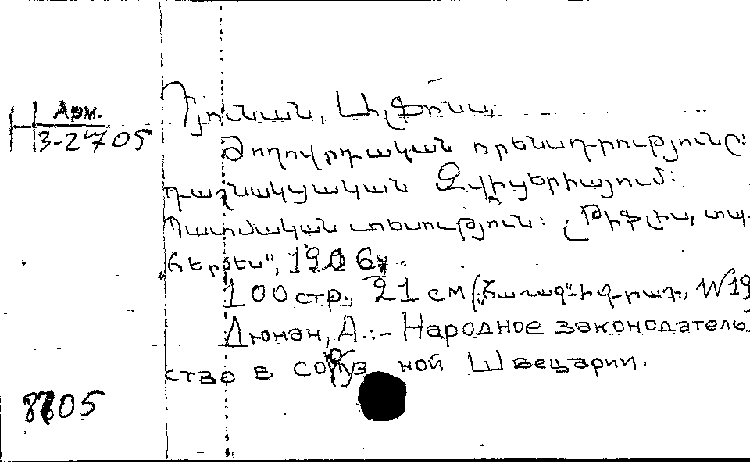 Арм.
Н 3-2705
Դյունան, Ալֆոնս,
Ժողովրդական օրենսդրությունը
դաշնակցական Զվիցերիայում:
Պատմական տեսություն: Թիֆլիս, տպ.
„Հերմես", 1906թ.
100 стр., 21 см („Ճառագ." հրատ., №19
Дюнан, А.:- Народное законодатель
ство в союзной Швецарии.
8705